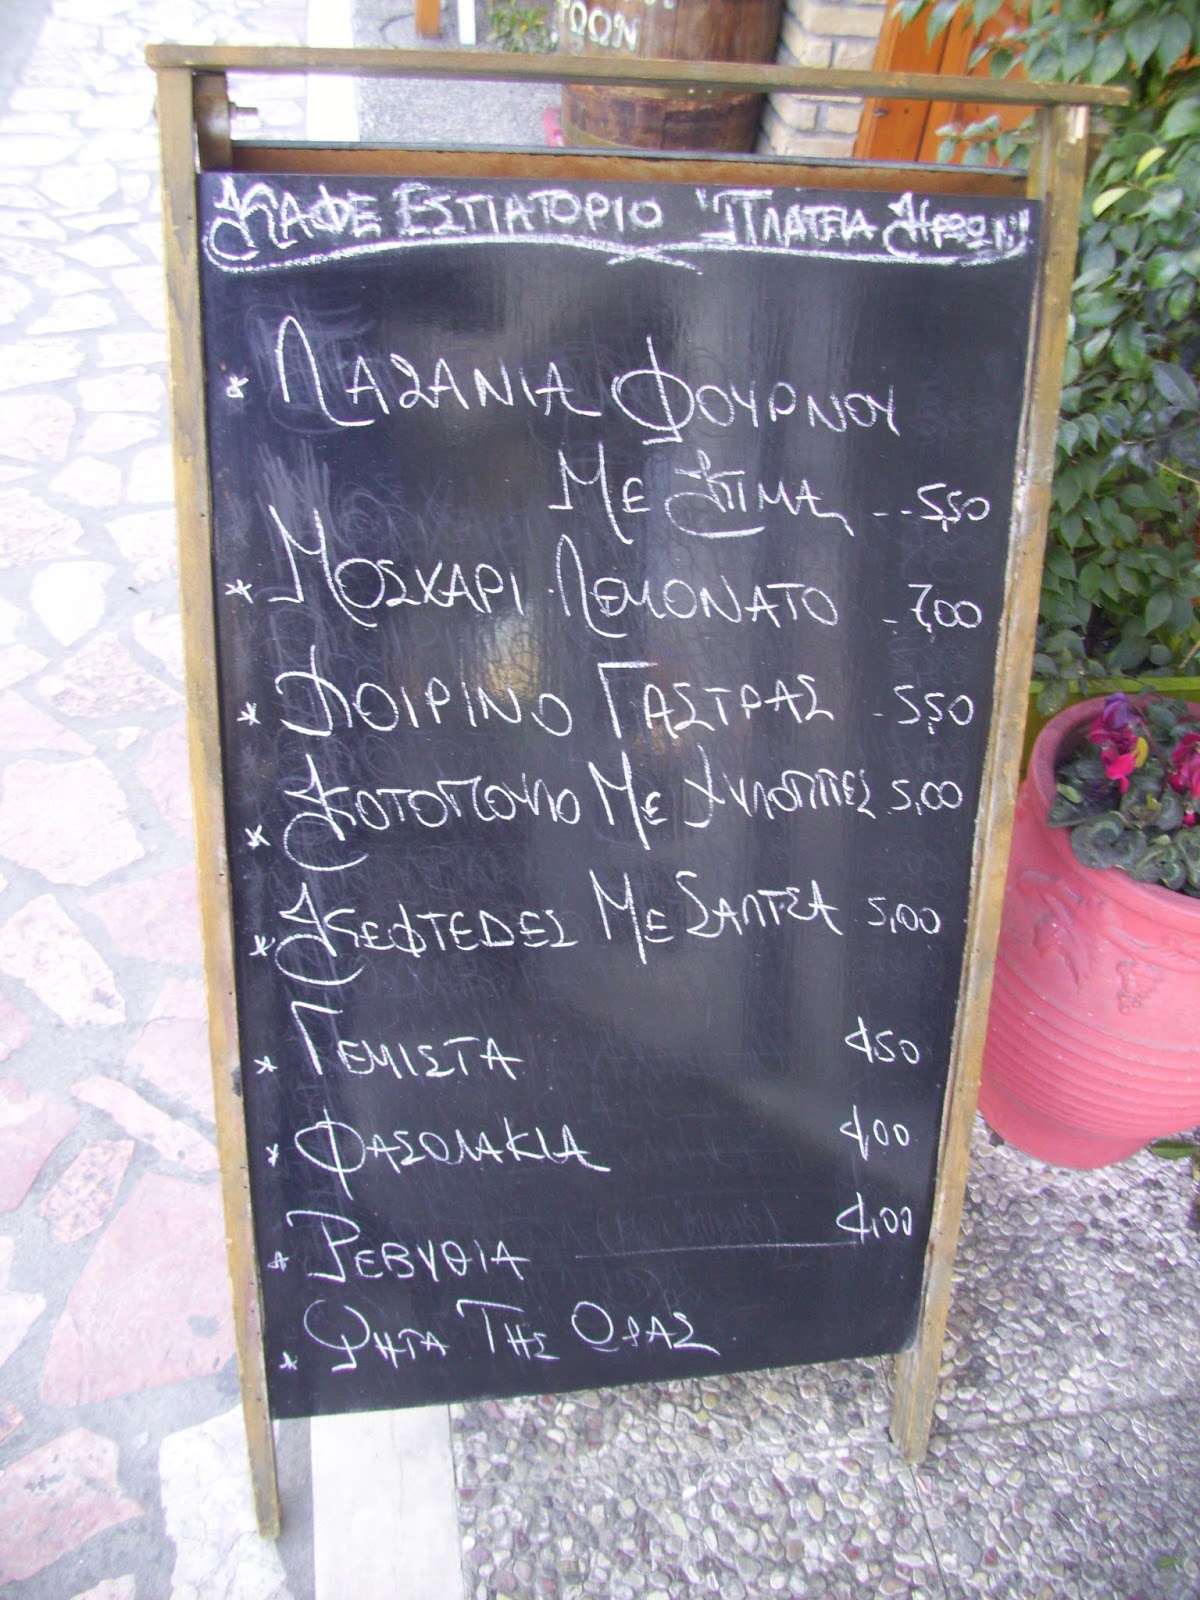 ΡΩΩΝ
ΚΑΦΕ ΕΣΤΙΑΤΟΡΙΟ "ΠΛΑΤΕΙΑ ΗΡΩΩΝ"
* ΛΑΖΑΝΙΑ ΦΟΥΡΝΟΥ
ΜΕ ΚΙΜΑ -- 5,50
* ΜΟΣΧΑΡΙ ΛΕΜΟΝΑΤΟ - 7,00
* ΧΟΙΡΙΝΟ ΓΑΣΤΡΑΣ - 5,50
* ΚΟΤΟΠΟΥΛΟ ΜΕ ΧΥΛΟΠΙΤΕΣ 5,00
* ΚΕΦΤΕΔΕΣ ΜΕ ΣΑΛΤΣΑ 5,00
* ΓΕΜΙΣΤΑ 4,50
* ΦΑΣΟΛΑΚΙΑ 4,00
* ΡΕΒΥΘΙΑ 4,00
* ΨΗΤΑ ΤΗΣ ΩΡΑΣ